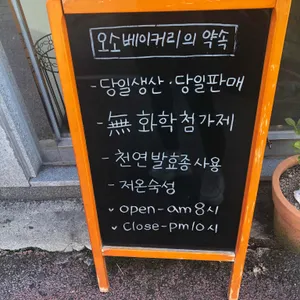 오소베이커리의 약속
- 당일생산·당일판매
- 無 화학첨가제
- 천연발효종사용
- 저온숙성
✓ open - am 8시
✓ Close - pm 10시